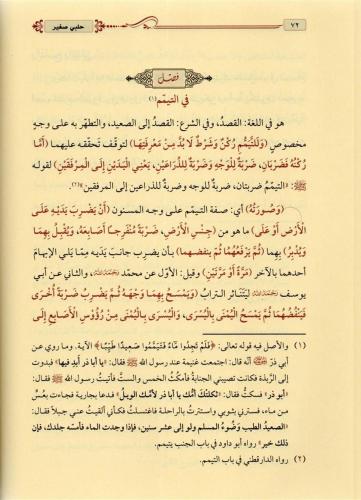 ٧٢ حلبي صغير
فصل
في التيمم (١)
هو في اللغة: القصدُ، وفي الشرع: القصدُ إلى الصعيد، والتطهّر به على وجهٍ
مخصوصٍ (وَلِلتَّيَمُّمِ رُكْنٌ وَشَرْطٌ لَا بُدَّ مِنْ مَعْرِفَتِهَا) لتوقّف تحقّقه عليهما (أَمَّا
رُكْنُهُ فَضَرْبَتَانِ، ضَرْبَةٌ لِلْوَجْهِ وَضَرْبَةٌ لِلذِّرَاعَيْنِ، يَعْنِي الْيَدَيْنِ إِلَى الْمِرْفَقَيْنِ) لقوله
ﷺ: «التيمّمُ ضربتان، ضربةٌ للوجه وضربةٌ للذراعين إلى المرفقين»(٢).
(وَصُورَتُهُ) أي: صفة التيمّم على وجه المسنون (أَنْ يَضْرِبَ يَدَيْهِ عَلَى
الْأَرْضِ أَوْ عَلَى) ما هو من (جِنْسِ الْأَرْضِ، ضَرْبَةً مُنْفَرِجًا أَصَابِعَهُ، وَيُقْبِلُ بِهِمَا
وَيُدْبِرُ) بهما (ثُمَّ يَرْفَعُهُمَا ثُمَّ يَنْفُضُهُمَا) بأن يضرب جانبَ يديه مِمّا يلي الإبهامَ
أحدهما بالآخر (مَرَّةً أَوْ مَرَّتَيْنِ) وقيل: الأوّل عن محمد رَحِمَهُ اللَّهُ، والثاني عن أبي
يوسف رَحِمَهُ اللَّهُ لِيَتَنَاثر الترابُ (وَيَمْسَحُ بِهِمَا وَجْهَهُ ثُمَّ يَضْرِبُ ضَرْبَةً أُخْرَى
فَيَنْفُضُهُمَا ثُمَّ يَمْسَحُ الْيُمْنَى بِالْيُسْرَى، وَالْيُسْرَى بِالْيُمْنَى مِنْ رُؤُوسِ الْأَصَابِعِ إِلَى
(١) والأصل فيه قوله تعالى: ﴿فَلَمْ تَجِدُوا مَاءً فَتَيَمَّمُوا صَعِيدًا طَيِّبًا﴾ الآية. وما روي عن
أبي ذرّ أنه قال: اجتمعت غنيمة عند رسول الله ﷺ فقال: «يا أبا ذر أبدِ فيها» فبدوت
إلى الرَّبذة فكانت تصيبني الجنابةُ فأمكثُ الخمس والستَّ فأتيتُ رسول الله ﷺ فقال:
«أبو ذر» فسكتُّ فقال: «ثكلتك أمُّك يا أبا ذر لأمّك الويلُ» فدعا بجارية فجاءت بعُسٍّ
من ماء، فسترني بثوبٍ واستترتُ بالراحلة فاغتسلتُ فكأني ألقيتُ عني جبلًا فقال:
«الصعيدُ الطيب وَضُوءُ المسلم ولو إلى عشر سنين، فإذا وجدت الماء فأمسه جلدك، فإن
ذلك خير» رواه أبو داود في باب الجنب يتيمم.
(٢) رواه الدارقطني في باب التيمم.